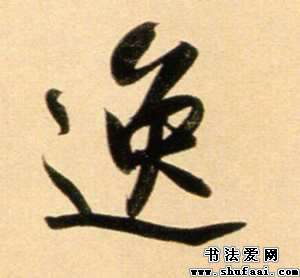 逸
书法爱网
www.shufaai.com